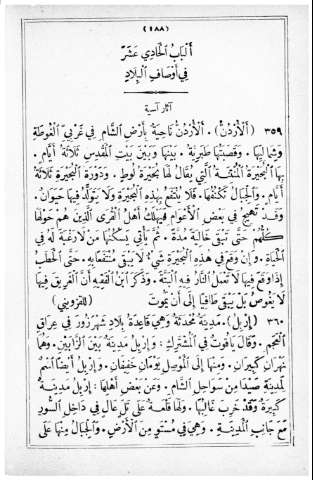 (١٨٨)
أَلْبَابُ الْحَادِي عَشَرَ
فِي أَوْصَافِ الْبِلَادِ
آثار آسية
٣٥٩ (أَلْأُرْدُنُّ). أَلْأُرْدُنُّ نَاحِيَةٌ بِأَرْضِ الشَّامِ فِي غَرْبِيِّ الْغُوطَةِ
وَشِمَالِيِّهَا. وَقَصَبَتُهَا طَبَرِيَّةُ. بَيْنَهَا وَبَيْنَ بَيْتِ الْمَقْدِسِ ثَلَاثَةُ أَيَّامٍ.
بِهَا الْبُحَيْرَةُ الْمُنْتِنَةُ الَّتِي يُقَالُ لَهَا بُحَيْرَةُ لُوطٍ. وَدَوْرَةُ الْبُحَيْرَةِ ثَلَاثَةُ
أَيَّامٍ. وَالْجِبَالُ تَكْنُفُهَا. فَلَا يُنْتَفَعُ بِهٰذِهِ الْبُحَيْرَةِ وَلَا يَتَوَلَّدُ فِيهَا حَيَوَانٌ.
وَقَدْ تَهِيجُ فِي بَعْضِ الْأَعْوَامِ فَيَهْلِكُ أَهْلُ الْقُرَى الَّذِينَ هُمْ حَوْلَهَا
كُلُّهُمْ حَتَّى تَبْقَى خَالِيَةً مُدَّةً. ثُمَّ يَأْتِي يَسْكُنُهَا مَنْ لَا رَغْبَةَ لَهُ فِي
الْحَيَاةِ. وَإِنْ وَقَعَ فِي هٰذِهِ الْبُحَيْرَةِ شَيْءٌ لَا يَبْقَى مُنْتَفَعًا بِهِ. حَتَّى الْحَطَبُ
إِذَا وَقَعَ فِيهَا لَا تَعْمَلُ النَّارُ فِيهِ الْبَتَّةَ. وَذَكَرَ ابْنُ الْفَقِيهِ أَنَّ الْغَرِيقَ فِيهَا
لَا يَغُوصُ بَلْ يَبْقَى طَافِيًا إِلَى أَنْ يَمُوتَ (للقزويني)
٣٦٠ (إِرْبِلُ). مَدِينَةٌ مُحْدَثَةٌ وَهِيَ قَاعِدَةُ بِلَادِ شَهْرَزُورَ فِي عِرَاقِ
الْعَجَمِ. وَقَالَ يَاقُوتُ فِي الْمُشْتَرَكِ: وَإِرْبِلُ مَدِينَةٌ بَيْنَ الزَّابَيْنِ. وَهُمَا
نَهْرَانِ كَبِيرَانِ. وَمِنْهَا إِلَى الْمَوْصِلِ يَوْمَانِ خَفِيفَانِ. وَإِرْبِلُ أَيْضًا اسْمٌ
لِمَدِينَةِ صَيْدَا مِنْ سَوَاحِلِ الشَّامِ. وَعَنْ بَعْضِ أَهْلِهَا: إِرْبِلُ مَدِينَةٌ
كَبِيرَةٌ وَقَدْ خَرِبَ غَالِبُهَا. وَلَهَا قَلْعَةٌ عَلَى تَلٍّ عَالٍ فِي دَاخِلِ السُّورِ
مَعَ جَانِبِ الْمَدِينَةِ. وَهِيَ فِي مُسْتَوٍ مِنَ الْأَرْضِ. وَالْجِبَالُ مِنْهَا عَلَى